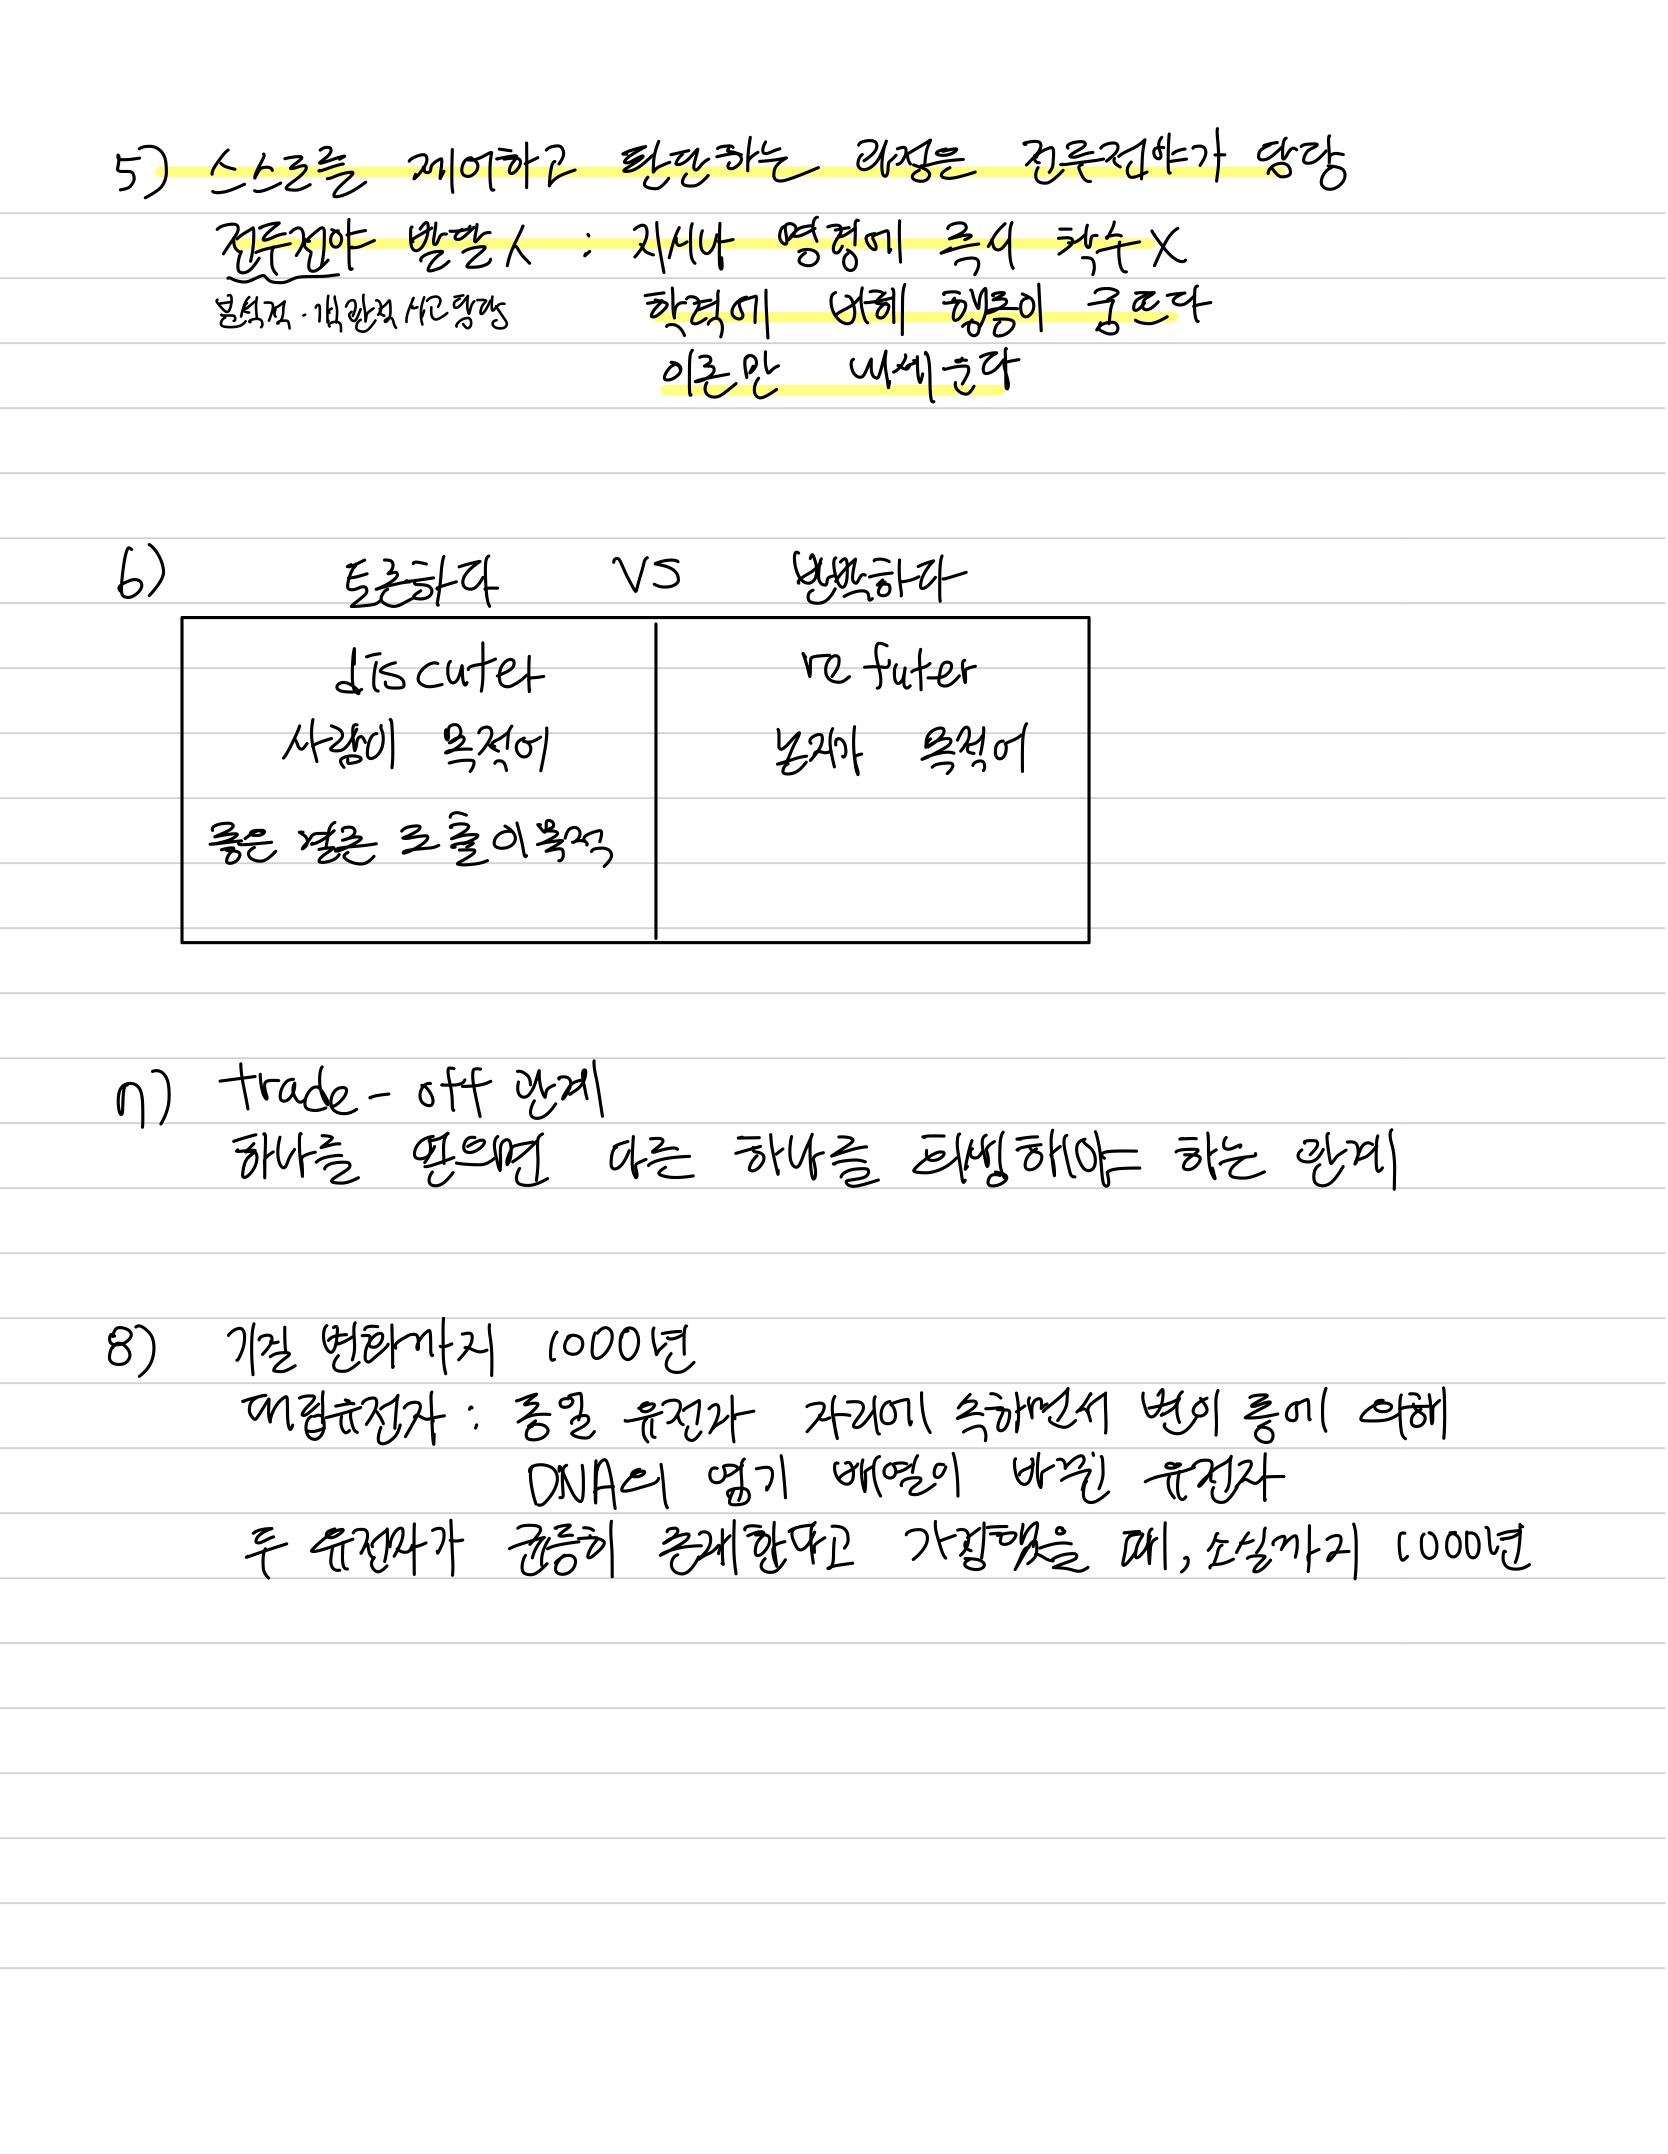 5) 스스로를 제어하고 판단하는 과정은 전두전야가 담당
전두전야 발달人 : 지시나 명령에 즉시 착수X
분석적·객관적 사고 담당 학력에 비해 행동이 굼뜨다
이론만 내세운다
6) 토론하다 VS 반박하다
discuter refuter
사람이 목적어 논지가 목적어
좋은 결론 도출이 목적
7) trade-off 관계
하나를 얻으면 다른 하나를 희생해야 하는 관계
8) 기질 변화까지 1000년
대립유전자 : 동일 유전자 자리에 속하면서 변이 등에 의해
DNA의 염기 배열이 바뀐 유전자
두 유전자가 균등히 존재한다고 가정했을 때, 소실까지 1000년